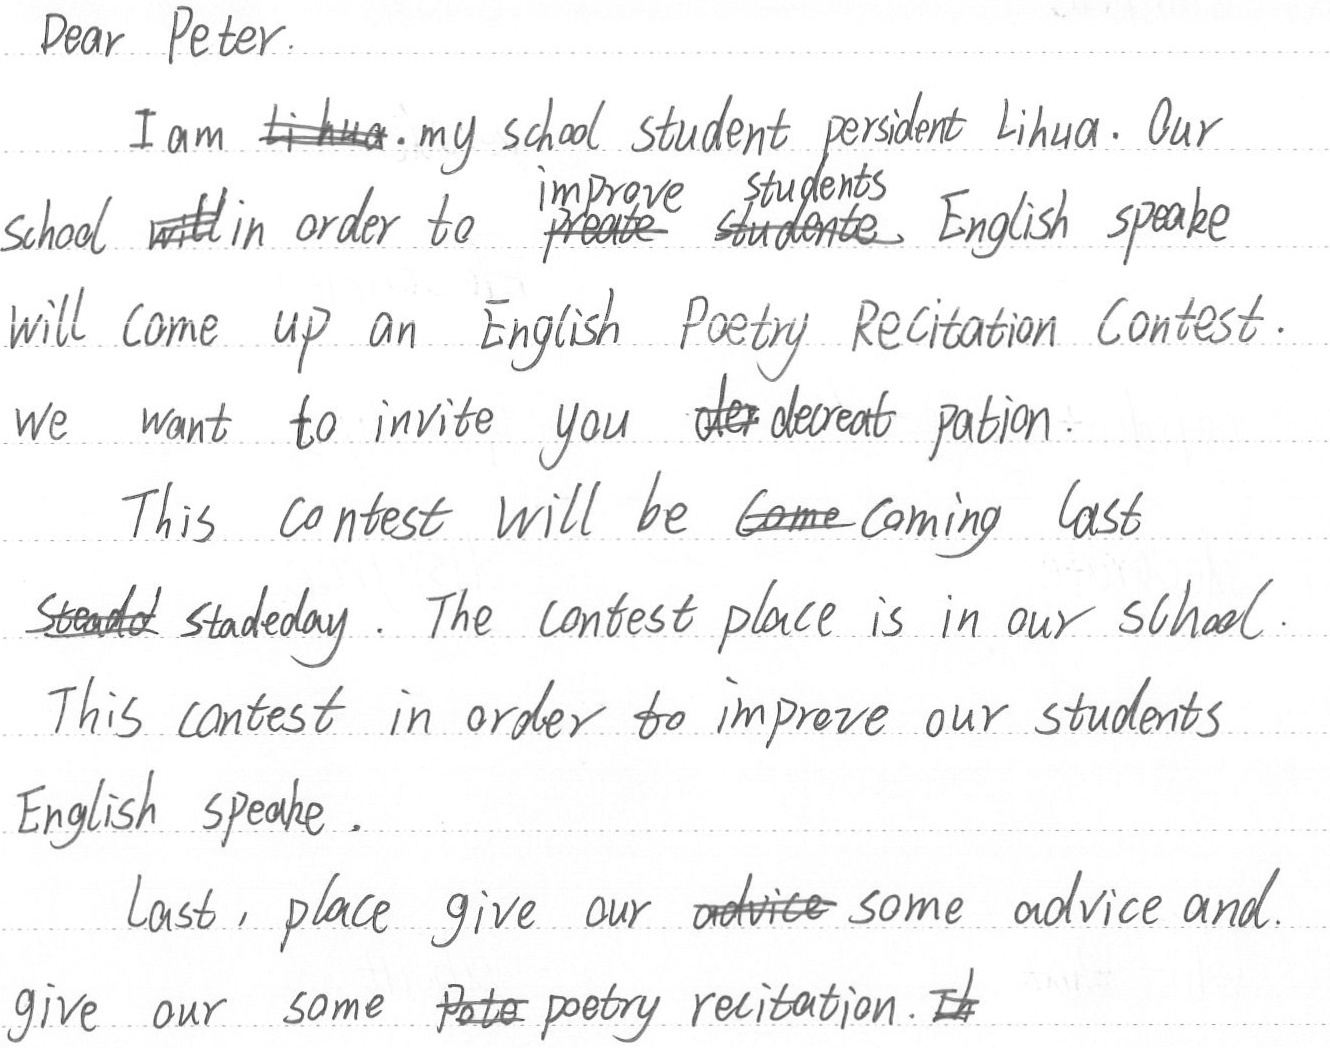 Dear Peter.
I am my school student persident Lihua. Our
school in order to improve students English speake
will come up an English Poetry Recitation Contest.
we want to invite you decreat pation.
This contest will be coming last
stadeday. The contest place is in our school.
This contest in order to improve our students
English speake.
Last, place give our some advice and.
give our some poetry recitation.